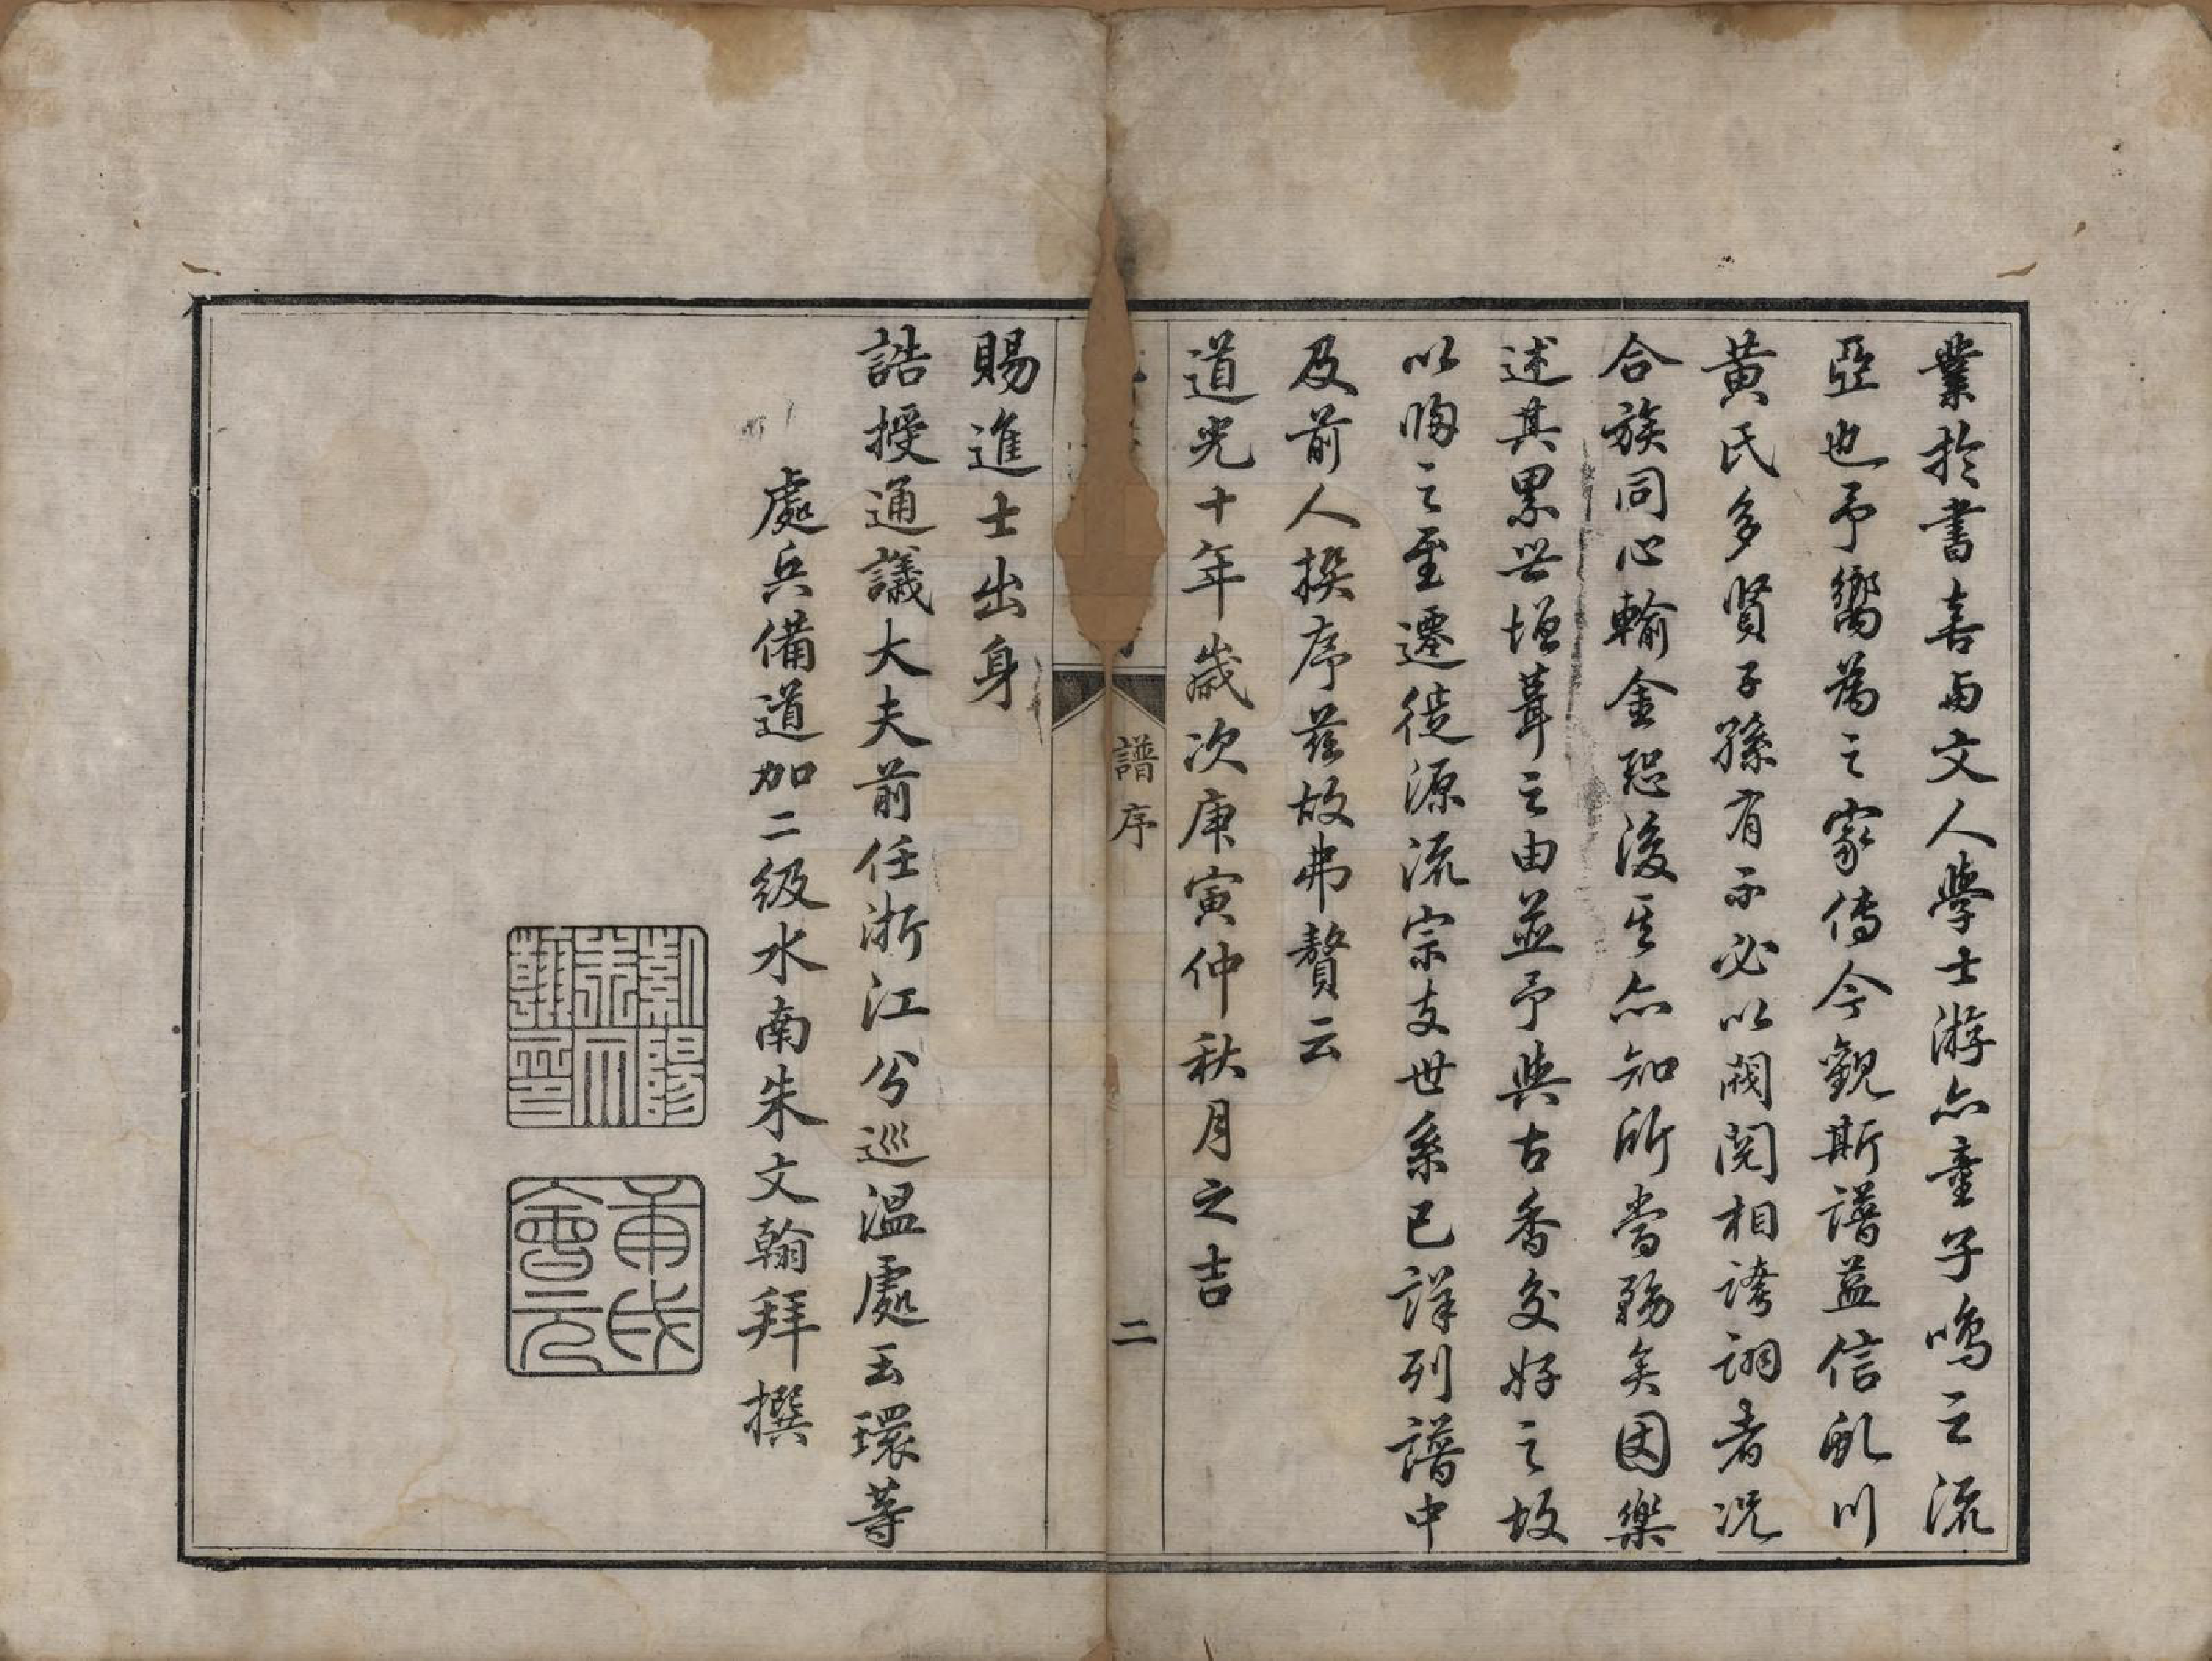 業於書喜與文人學士游亦童子鳴之流
亞也予嚮為之家傳今觀斯譜益信畎川
黃氏多賢子孫有不必以閥閱相誇詡者况
合族同心輸金恐後其亦知所當務矣因樂
述其累世增葺之由並予與古香交好之故
以歸之至遷徙源流宗支世系已詳列譜中
及前人撰序茲故弗贅云
道光十年歲次庚寅仲秋月之吉
譜序
二
賜進士出身
誥授通議大夫前任浙江分巡溫處玉環等
處兵備道加二級水南朱文翰拜撰
紫陽朱文翰印
甫氏會元